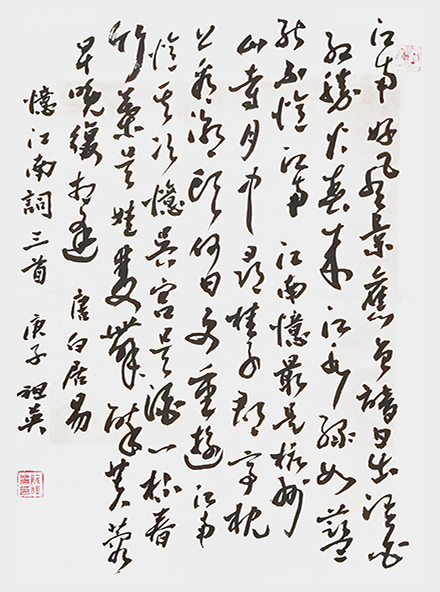 江南好风景舊曾諳日出江花
紅勝火春来江水綠如藍
能不憶江南 江南憶最是杭州
山寺月中尋桂子郡亭枕
上看潮頭何日更重遊 江南
憶其次憶吳宮吳酒一杯春
竹葉吳娃雙舞醉芙蓉
早晚復相逢 唐白居易
憶江南詞三首 庚子 祖英